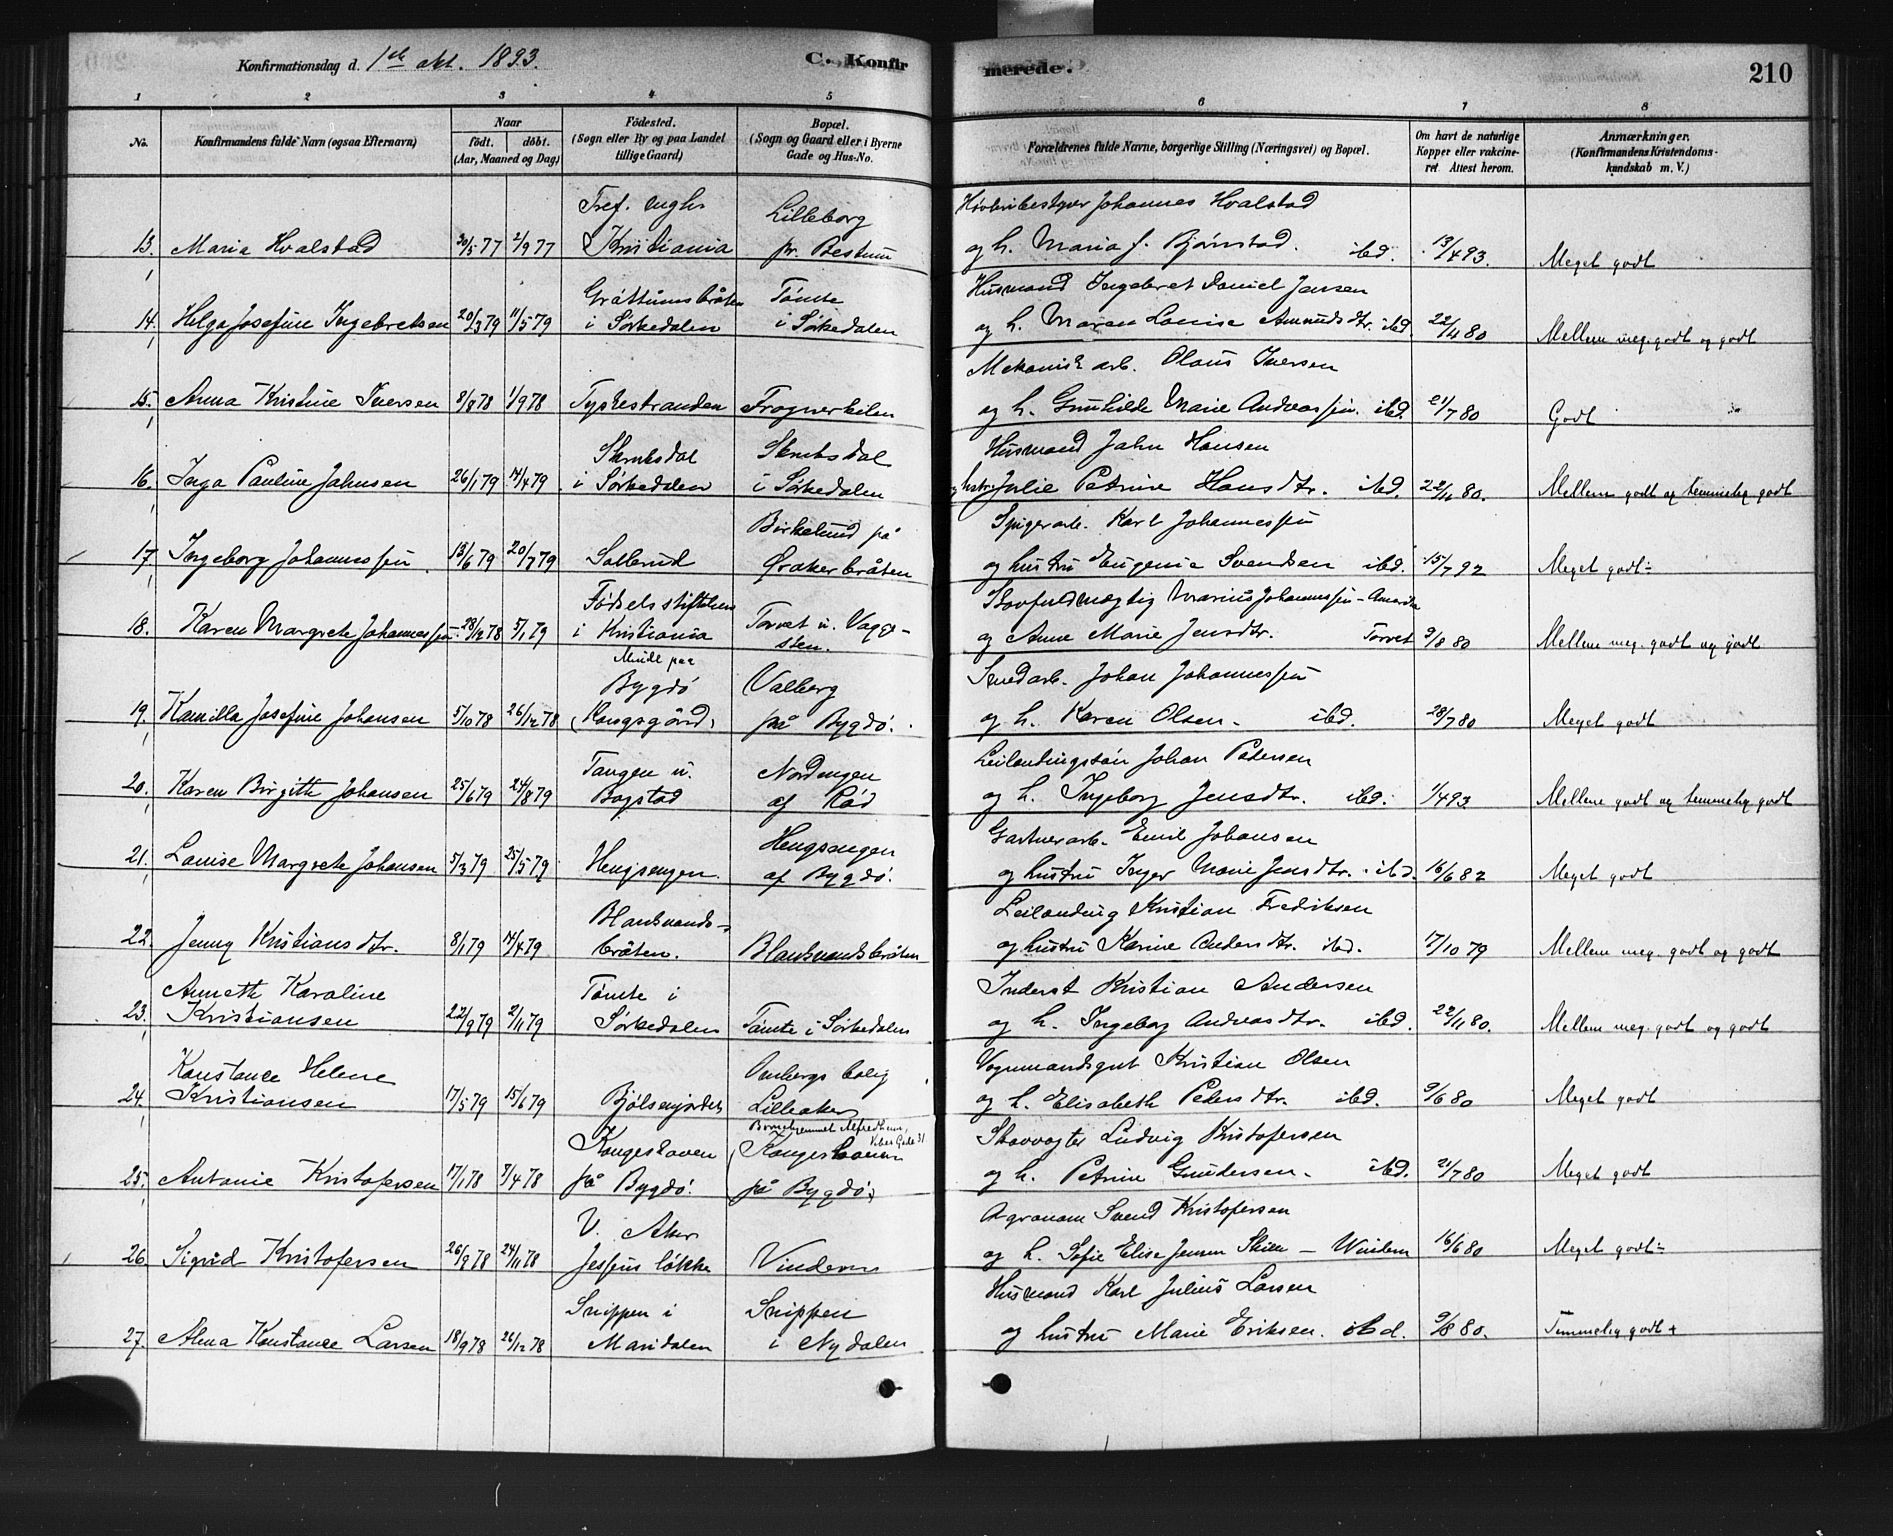 Konfirmationsdag d. 1ste okt. 1893.
C. Konfir
merede.
210
1 2 3 4 5 6 7 8
No.
Konfirmandens fulde Navn (ogsaa Efternavn)
Naar
født. døbt.
(Aar, Maaned og Dag)
Fødested.
(Sogn eller By og paa Landet
tillige Gaard)
Bopæl.
(Sogn og Gaard eller i Byerne
Gade og Hus-No.
Forældrenes fulde Navne, borgerlige Stilling (Næringsvei) og Bopæl.
Om havt de naturlige
Kopper eller vakcine-
ret. Attest herom.
Anmærkninger.
(Konfirmandens Kristendoms-
kundskab m. V.)
Tref. mgh. Lilleborg Høvleribestyrer Johannes Hvalstad
13. Maria Hvalstad 20/5 77 2/9 77 Kristiania pr. Bestum og h. Maria f. Bjørnstad. ibd. 13/4 93. Meget godt
Gråttumsbråten Tømte Husmand Ingebret Daniel Jensen
14. Helga Josefine Ingebretsen 20/3 79 11/5 79 i Sørkedalen i Sørkedalen og h. Maren Louise Amundsdtr. ibd. 22/11 80 Mellem meg. godt og godt
Mekanisk arb. Olaus Iversen
15. Anna Kristine Iversen 8/8 78 1/9 78 Tyskestranden Frognerkilen og h. Gunhilde Marie Andreassen. ibd. 21/7 80 Godt
Skrubsdal Skrubsdal Husmand Jahn Hansen
16. Inga Pauline Jahnsen 26/1 79 14/4 79 i Sørkedalen i Sørkedalen og hstr. Julie Petrine Hansdtr. ibd. 22/11 80. Mellem godt og temmelig godt
Birkelund på Spigerarb. Karl Johannessen
17. Ingeborg Johannessen 13/6 79 20/7 79 Sollerud Øraker bråten og hustru Eugenie Svendsen ibd. 15/7 92 Meget godt ÷
Fødselsstiftelsen Torvet u. Vagge- Skovfuldmægtig Marius Johannessen - Amerika
18. Karen Margrete Johannessen 28/12 78 5/1 79 i Kristiania sten. og Anne Marie Jensdtr. Torvet 9/8 80 Mellem meg. godt og godt
Munde paa
Bygdø Valberg Smedarb. Johan Johannessen
19. Kamilla Josefine Johansen 5/10 78 26/12 78 (Kongsgård) på Bygdø. og h. Karen Olsen. ibd. 28/7 80 Meget godt
Tangen u. Nordengen Leilendingsøn Johan Pedersen
20. Karen Birgitte Johansen 25/6 79 24/8 79 Bogstad af Rød og h. Ingeborg Jensdtr. ibd. 1/4 93 Mellem godt og temmelig godt
Hengsengen Gartnerarb. Emil Johansen
21. Louise Margrete Johansen 5/3 79 25/5 79 Hengsengen. af Bygdø. og hustru Inger Marie Jensdtr. ibd. 16/6 82 Meget godt
Blankvands- Leilending Kristian Fredriksen
22. Jenny Kristiansdtr. 8/1 79 14/4 79 bråten. Blankvandsbråten og hustru Karine Andersdtr. ibd. 17/10 79 Mellem meg. godt og godt
Annette Karoline Tømte i Inderst Kristian Andersen
23. Kristiansen 22/9 79 2/11 79 Sørkedalen Tømte i Sørkedalen og h. Ingeborg Andreasdtr. ibd. 22/11 80. Mellem meg. godt og godt
Konstance Helene bolig Vognmandsgut Kristian Olsen
24. Kristiansen 17/5 79 15/6 79 Bjølsenjordet Lilleaker og h. Elisabeth Pedersdtr. ibd. 9/6 80 Meget godt
Børnehjemmet Alfredheim,
Vibes Gade 31
Kongeskoven (Kongeskoven Skovvogter Ludvig Kristofersen
25. Antonie Kristofersen 17/1 78 7/4 78 på Bygdø. på Bygdø) og h. Petrine Gundersen. ibd. 21/7 80 Meget godt
V. Aker Agronom Svend Kristofersen
26. Sigrid Kristofersen 26/9 78 24/11 78 Jespus løkke Vinderen og h. Sofie Elise Jensen Skien - Vindern 16/6 80 Meget godt ÷
Snippen i Snippen Husmand Karl Julius Larsen
27. Alma Konstance Larsen 18/9 78 26/12 78 Maridalen i Nydalen og hustru Marie Eriksen. ibd. 9/8 80. Temmelig godt +